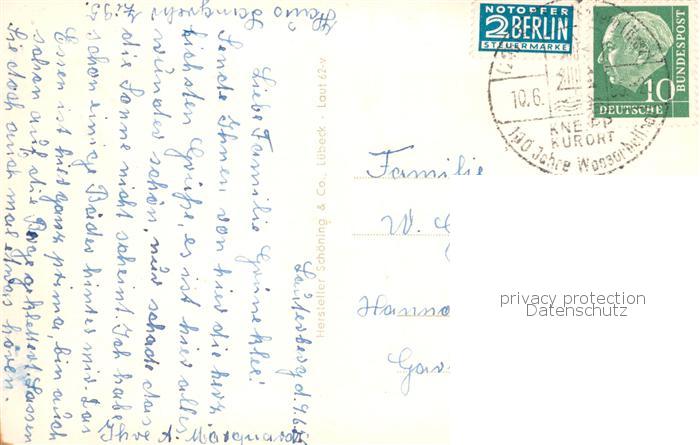 Lauterberg, d. 9.6.
Liebe Familie Grüneklee!
Sende Ihnen von hier die herz
lichsten Grüße, es ist hier alles
wunder schön, nur schade dass
die Sonne nicht scheint. Ich habe
schon einige Bäder hinter mir. Das
Essen ist hier ganz prima, bin auch
schon auf die Berge geklettert. Lassen
Sie doch auch mal etwas hören.
Ihre A. Marquardt
Haus
Hersteller: Schöning & Co., Lübeck
Laut 62-v
NOTOPFER
2 BERLIN
STEUERMARKE
10.6.
KNEIPP
KURORT
100 Jahre Wasserheil
10
DEUTSCHE
BUNDESPOST
Familie
W.
Hanno
Gar
privacy protection
Datenschutz